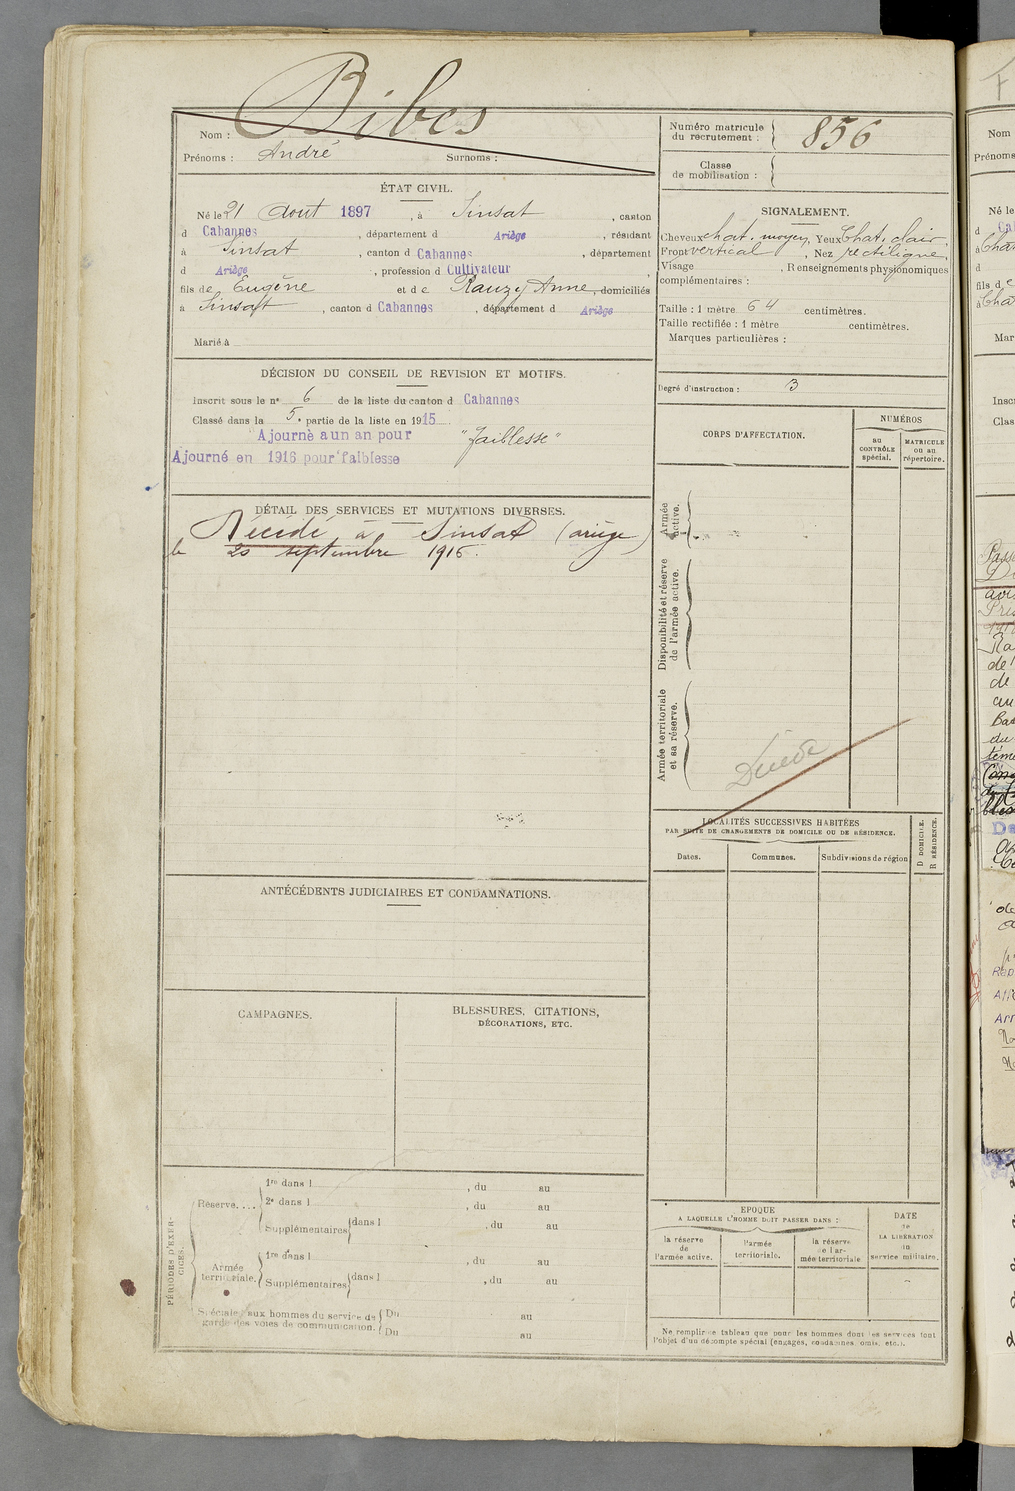 Bibes
Nom :
Prénoms : André Surnoms :
Numéro matricule du recrutement : 856
Classe de mobilisation :
ÉTAT CIVIL.
Né le 21 Aout 1897, à Sinsat, canton
d Cabannes, département d Ariège, résidant
à Sinsat, canton d Cabannes, département
d Ariège, profession d Cultivateur
fils de Eugène et de Rauzy Anne, domiciliés
à Sinsat, canton d Cabannes, département d Ariège
Marié à
SIGNALEMENT.
Cheveux chat. moyen, Yeux Chat. clair,
Front vertical, Nez rectiligne,
Visage , Renseignements physionomiques
complémentaires :
Taille : 1 mètre 64 centimètres.
Taille rectifiée : 1 mètre centimètres.
Marques particulières :
Degré d'instruction : 3
DÉCISION DU CONSEIL DE REVISION ET MOTIFS.
Inscrit sous le n° 6 de la liste du canton d Cabannes
Classé dans la 5e partie de la liste en 1915
Ajourné a un an pour "faiblesse"
Ajourné en 1916 pour faiblesse
CORPS D'AFFECTATION.
NUMÉROS
au CONTRÔLE spécial.
MATRICULE ou au répertoire.
Armée active.
Disponibilité et réserve de l'armée active.
Armée territoriale et sa réserve.
DÉTAIL DES SERVICES ET MUTATIONS DIVERSES.
Décédé à Sinsat (ariège)
le 20 septembre 1916.
LOCALITÉS SUCCESSIVES HABITÉES
PAR SUITE DE CHANGEMENTS DE DOMICILE OU DE RÉSIDENCE.
Dates. Communes. Subdivisions de région
D DOMICILE.
R RÉSIDENCE.
ANTÉCÉDENTS JUDICIAIRES ET CONDAMNATIONS.
CAMPAGNES.
BLESSURES, CITATIONS,
DÉCORATIONS, ETC.
PÉRIODES D'EXERCICES.
Réserve....
1re dans l , du au
2e dans l , du au
Supplémentaires dans l , du au
Armée territoriale.
1re dans l , du au
Supplémentaires dans l , du au
Spéciale aux hommes du service de
garde des voies de communication.
Du au
Du au
EPOQUE
A LAQUELLE L'HOMME DOIT PASSER DANS :
la réserve de l'armée active.
l'armée territoriale.
la réserve de l'armée territoriale
DATE
de
LA LIBÉRATION
du
service militaire.
Ne remplir ce tableau que pour les hommes dont les services font
l'objet d'un décompte spécial (engagés, condamnés, omis, etc.).